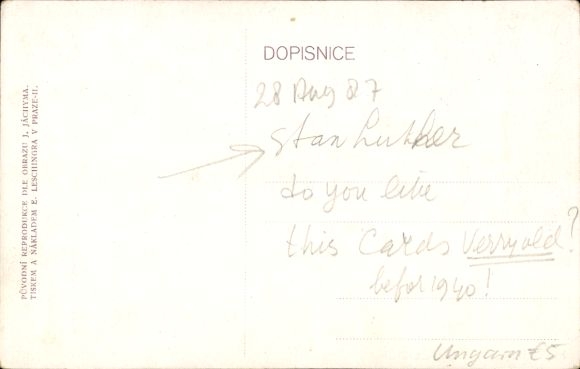 PŮVODNÍ REPRODUKCE DLE OBRAZU J. JÁCHYMA.
TISKEM A NÁKLADEM E. LESCHINGRA V PRAZE-II.
DOPISNICE
28 Aug 87
Stan Luther
do you like
this Cards Verry old?
befor 1940!
Ungarn £5